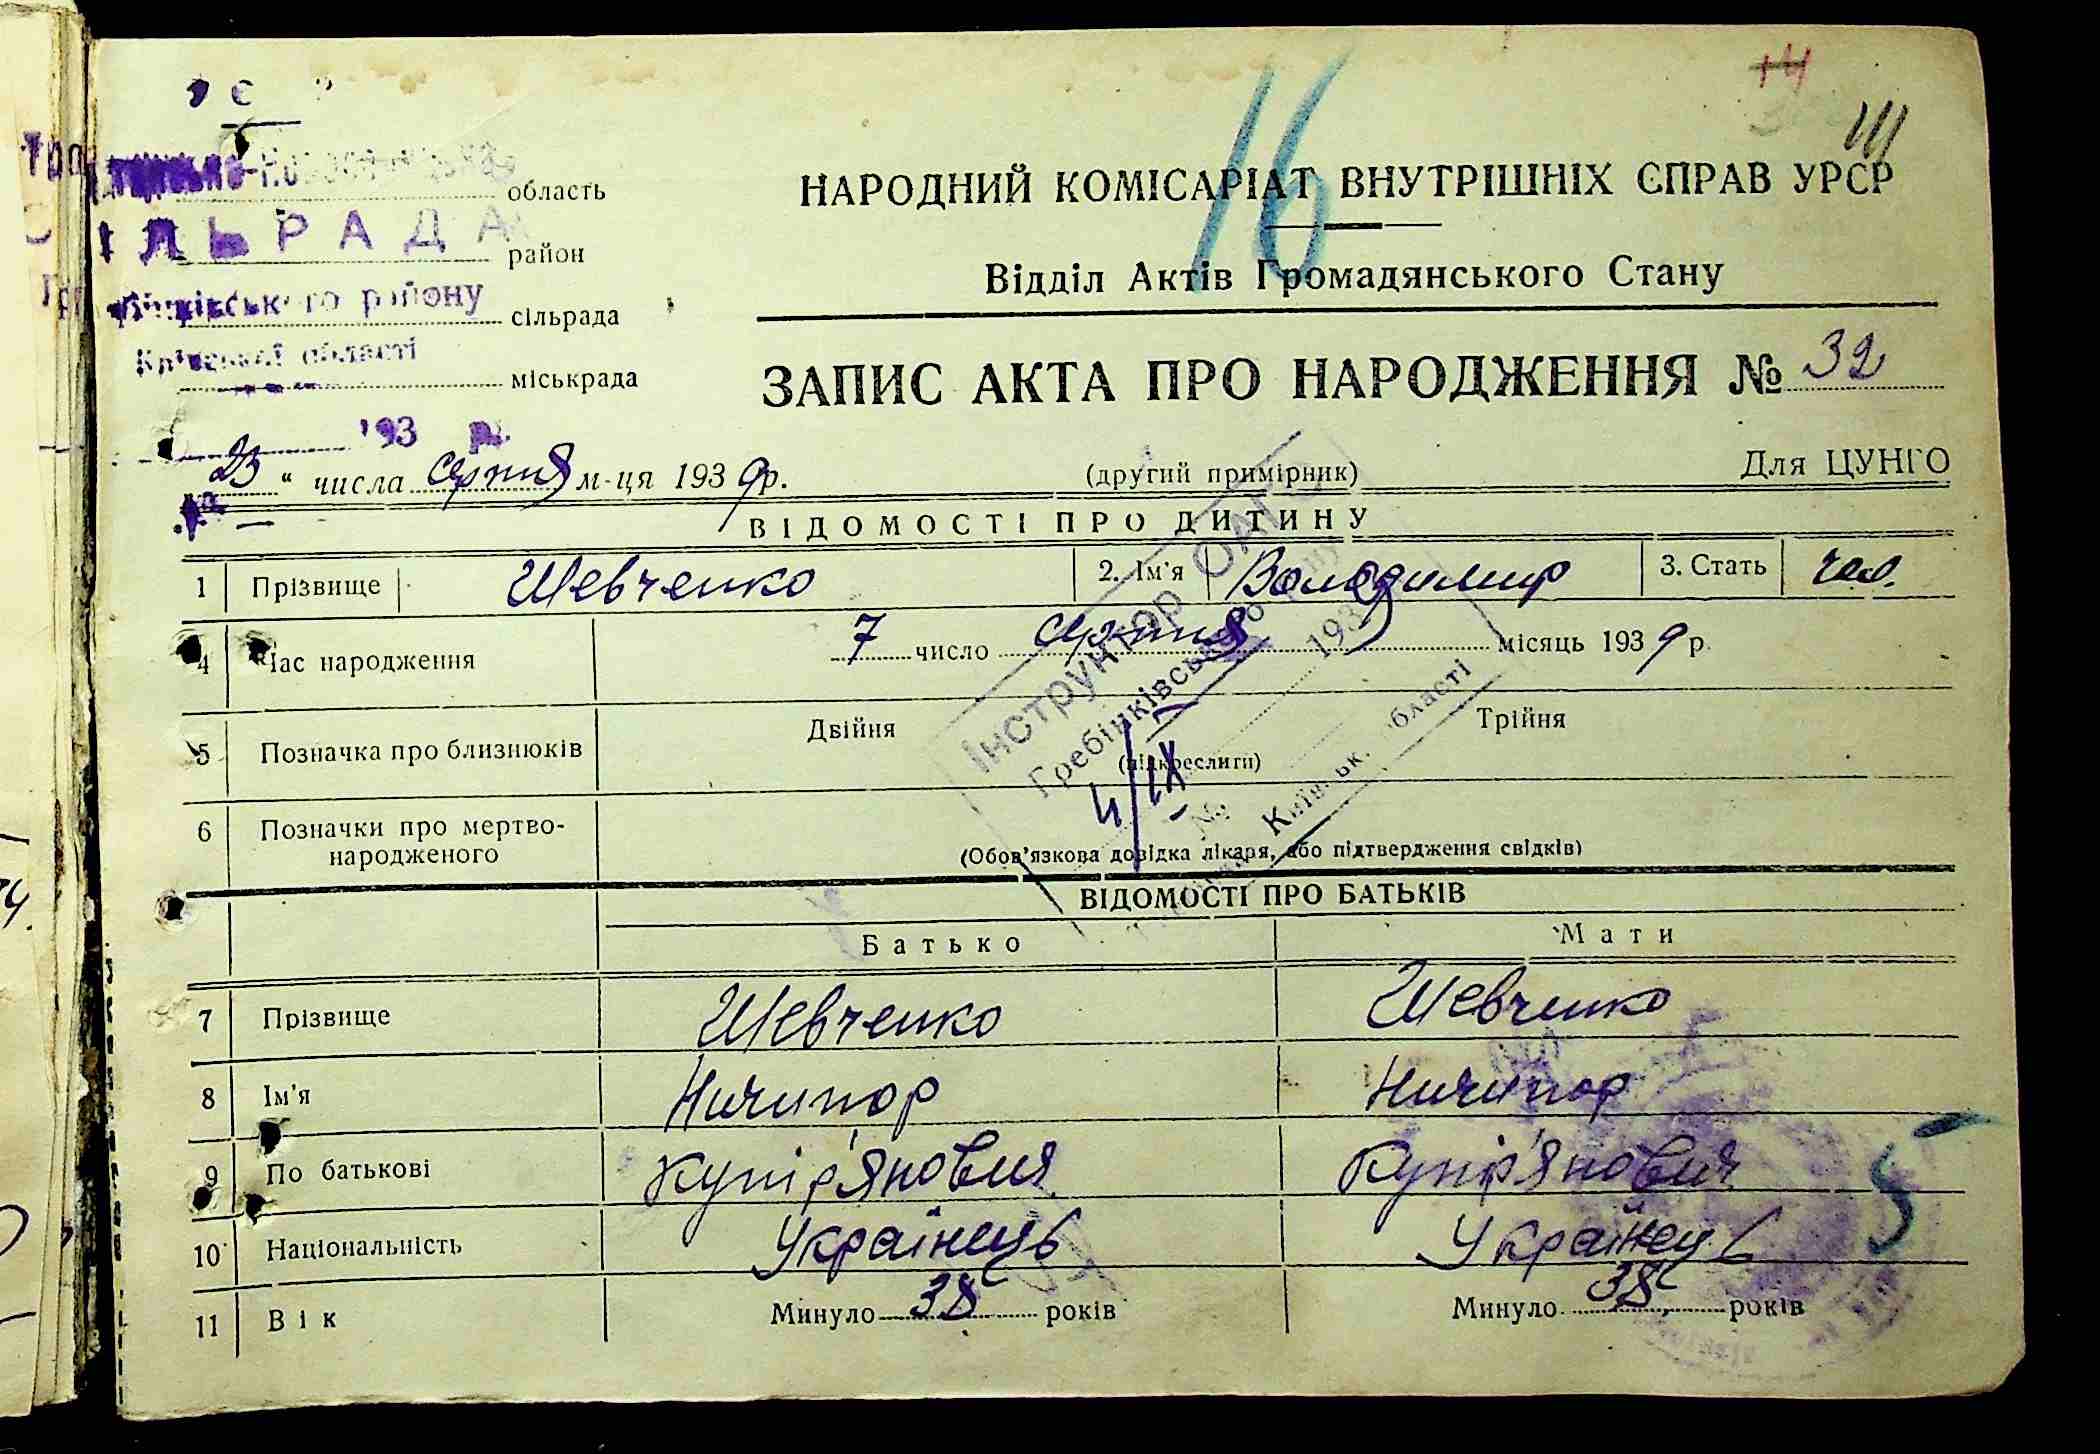 14
111
16
область
НАРОДНИЙ КОМІСАРІАТ ВНУТРІШНІХ СПРАВ УРСР
СІЛЬРАДА
район
Відділ Актів Громадянського Стану
району
сільрада
Київської області
міськрада
ЗАПИС АКТА ПРО НАРОДЖЕННЯ № 32
193 р.
23 " числа серпня м-ця 1939 р.
(другий примірник)
Для ЦУНГО
ВІДОМОСТІ ПРО ДИТИНУ
1 Прізвище Шевченко 2. Ім'я Володимир 3. Стать чол.
4 Час народження 7 число серпня місяць 1939 р.
Інструктор ОАГС
Гребінківського
193
4/IX
№
Київськ. області
5 Позначка про близнюків Двійня (підкреслити) Трійня
6 Позначки про мертво-
народженого
(Обов'язкова довідка лікаря, або підтвердження свідків)
ВІДОМОСТІ ПРО БАТЬКІВ
Батько Мати
7 Прізвище Шевченко Шевченко
8 Ім'я Ничипор Ничипор
9 По батькові Купір'янович Купір'янович
10 Національність Українець Українець
11 Вік Минуло 38 років Минуло 38 років
5